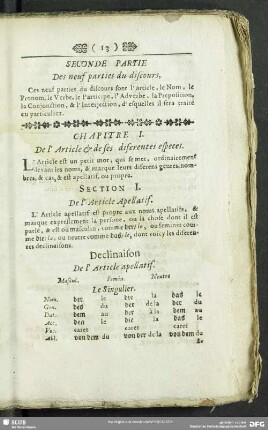 ( 13 )
SECONDE PARTIE
Des neuf parties du discours.
Ces neuf parties du discours sont l'article, le Nom, le
Pronom, le Verbe, le Participe, l'Adverbe, la Preposition,
la Conjonction, & l'Interjection, d'esquelles il sera traité
en particulier.
CHAPITRE I.
De l'Article & de ses diferentes especes.
L'Article est un petit mot, qui se met, ordinairement
devant les noms, & marque leurs diferens genres, nom-
bres, & cas, & est apellatif, ou propre.
SECTION I.
De l'Article Apellatif.
L'Article apellatif est propre aux noms apellatifs, &
marque expressément la persone, ou la chose dont il est
parlé, & est ou masculin, comme der/ le, ou feminin com-
me die/ la, ou neutre comme das/ le, dont voicy les diferen-
tes declinaisons.
Declinaison
De l'Article apellatif.
Mascul. Femin. Neutre
Le Singulier.
Nom. der le die la das le
Gen. des du der de la des du
Dat. dem au der à la dem au
Acc. den le die la das le
Voc. caret caret
Abl. von dem du von der de la von dem du